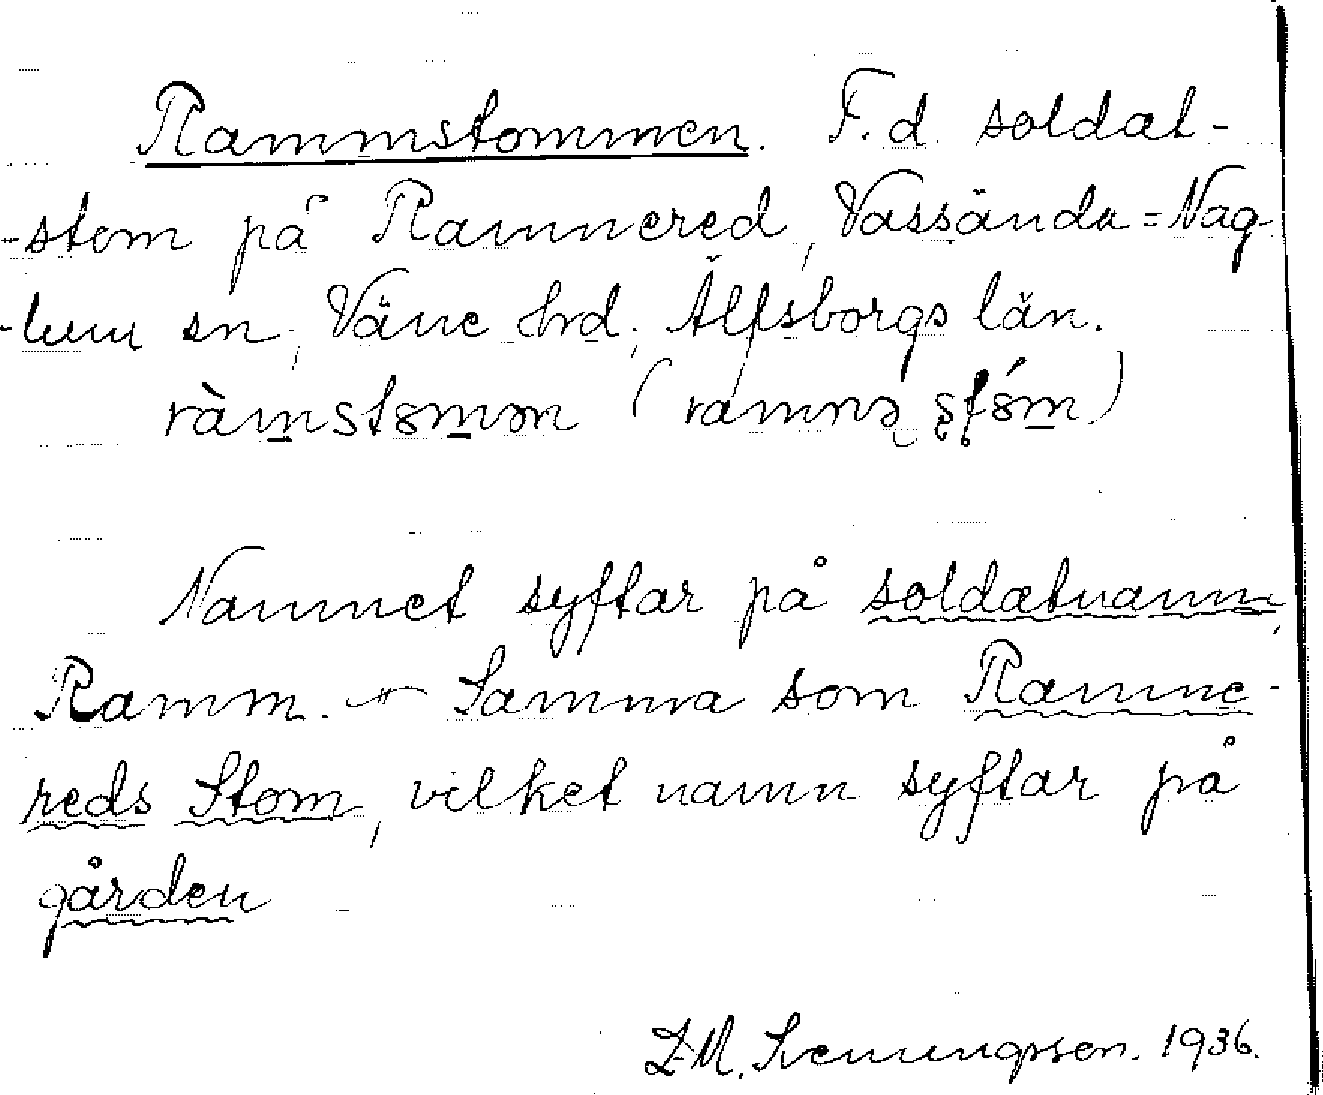 Rammstommen. F.d. soldat-
-stom på Ramnered, Vassända=Nag-
-lum sn, Väne hrd, Älfsborgs län.
ràmstomən (ramnə stóm)
Namnet syftar på soldatnamn,
Ramm. - Samma som Ramne-
reds Stom, vilket namn syftar på
gården
1936.